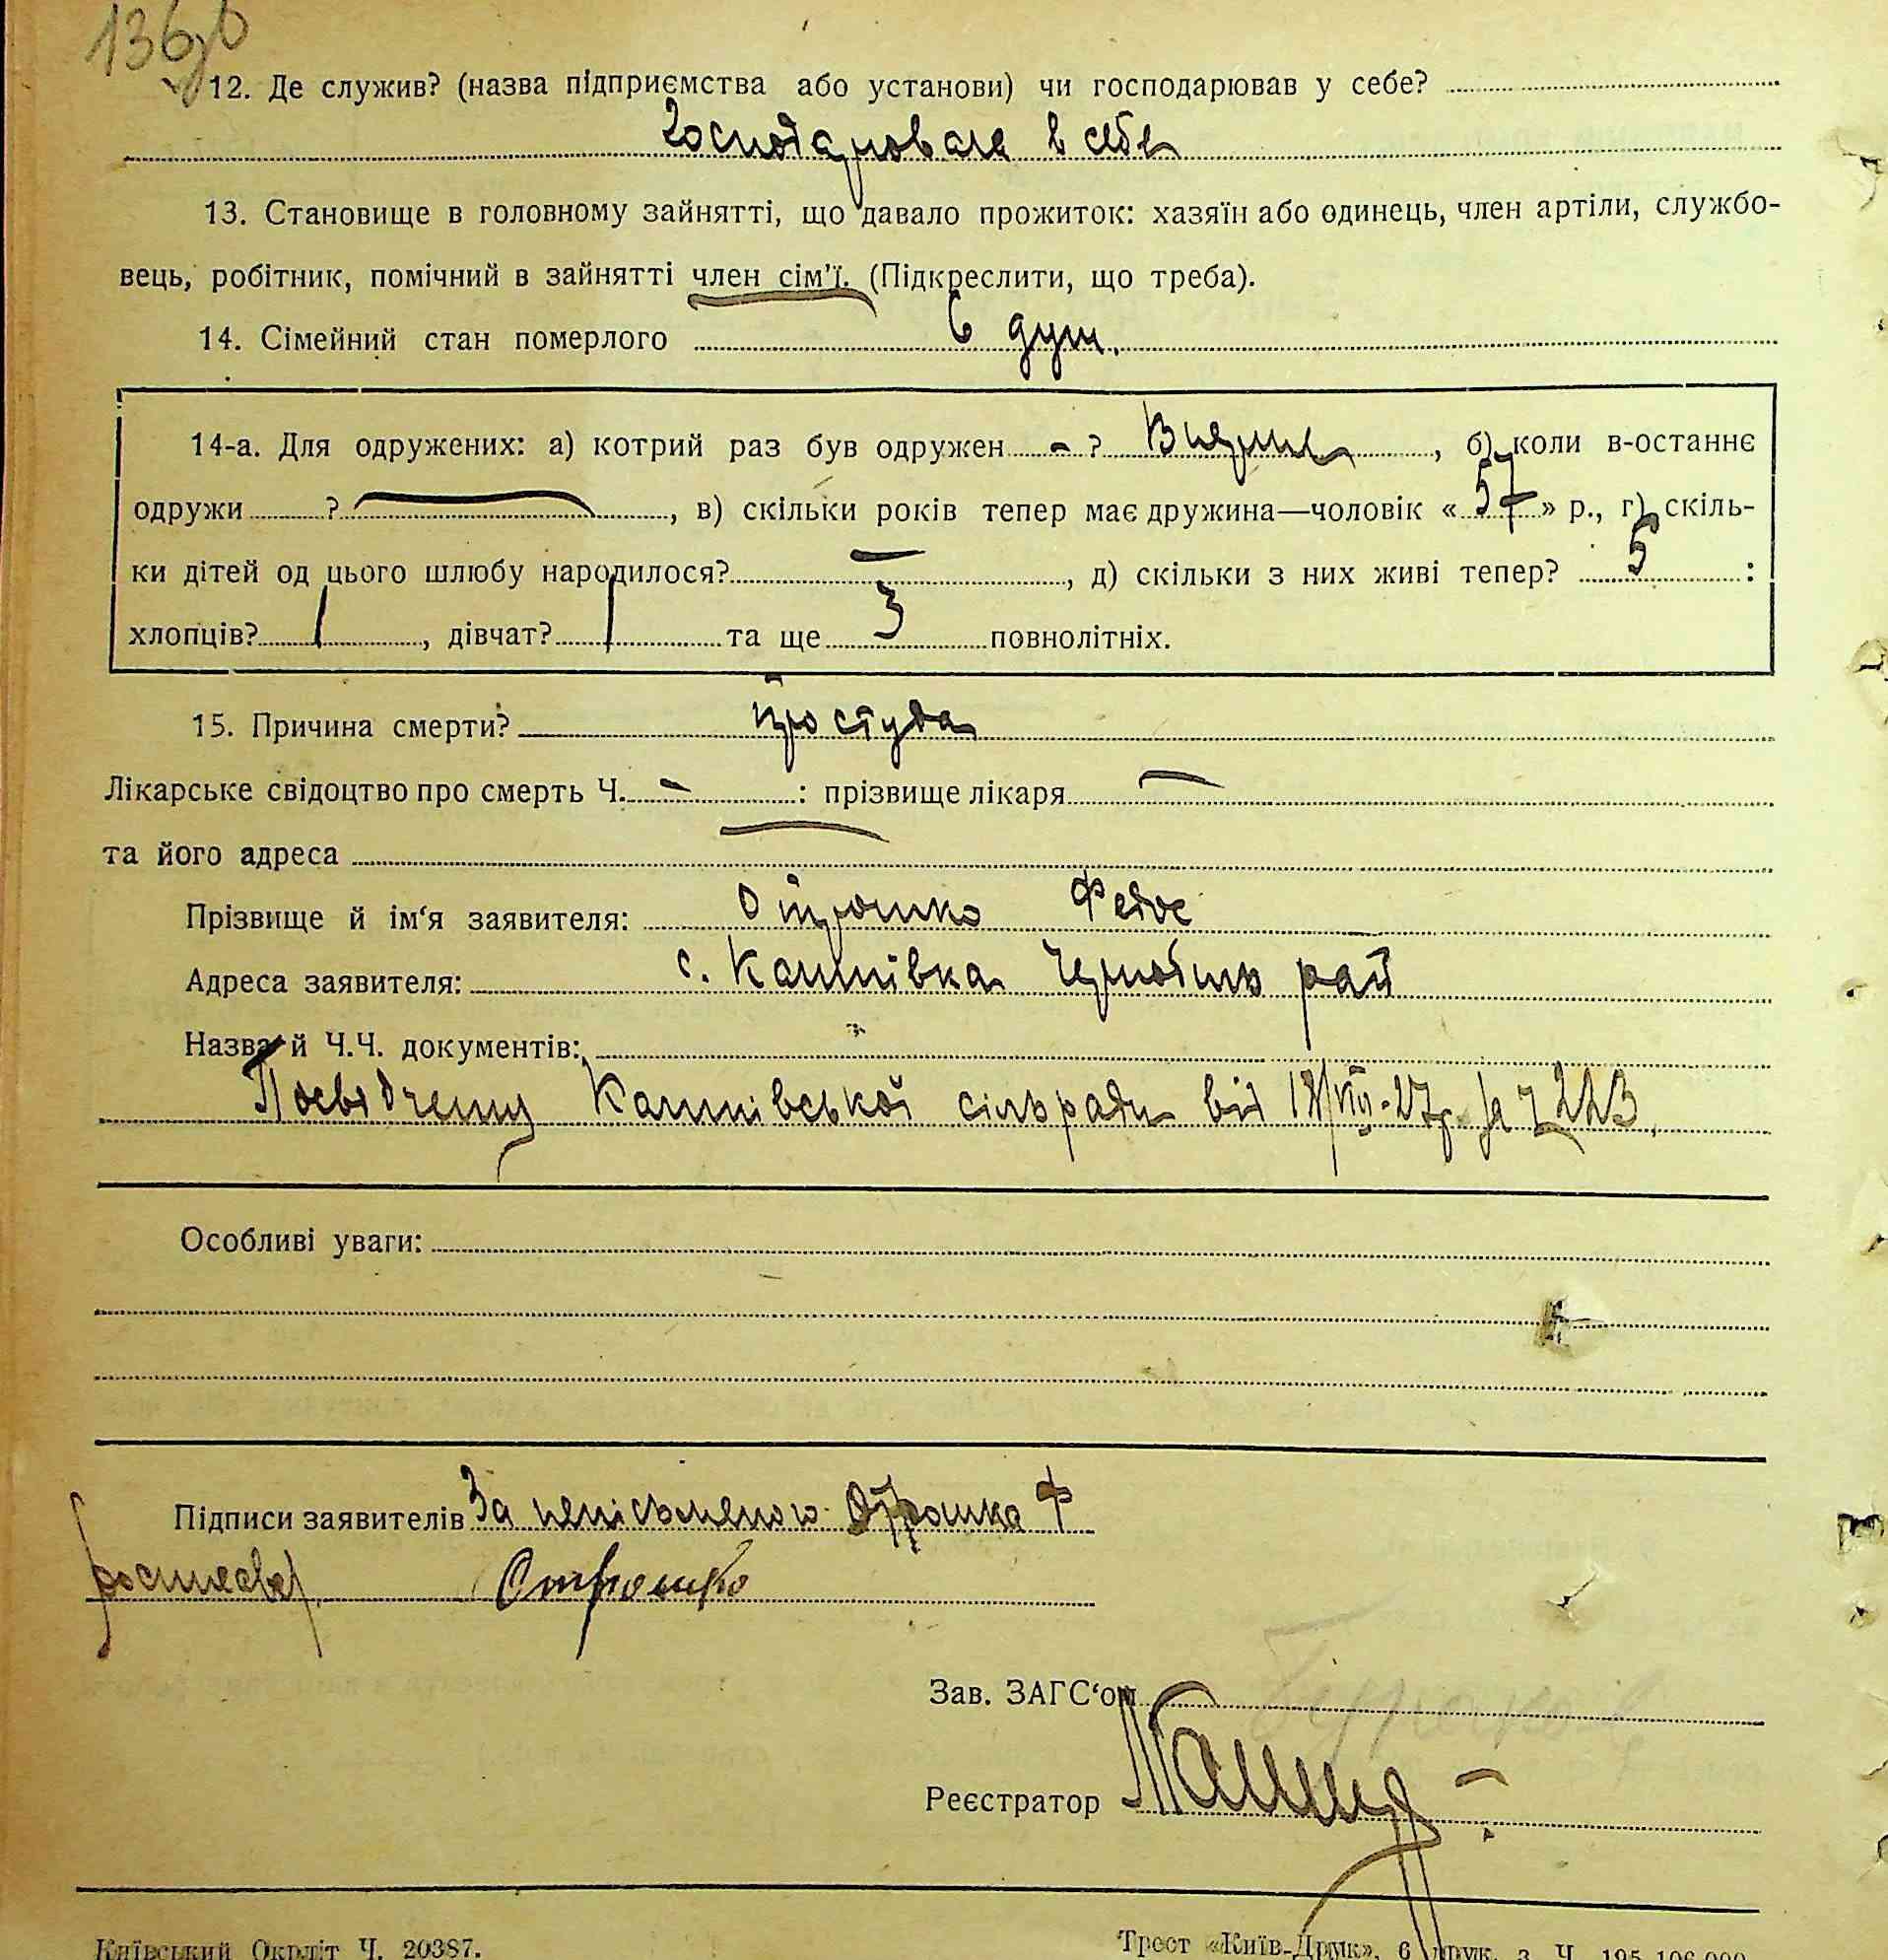 136зв
12. Де служив? (назва підприємства або установи) чи господарював у себе?
Господарювала в себе
13. Становище в головному зайнятті, що давало прожиток: хазяїн або одинець, член артіли, службо-
вець, робітник, помічний в зайнятті член сім'ї. (Підкреслити, що треба).
14. Сімейний стан померлого 6 душ.
14-а. Для одружених: а) котрий раз був одружен - ? , б) коли в-останнє
одружи ? — , в) скільки років тепер має дружина—чоловік «57» р., г) скіль-
ки дітей од цього шлюбу народилося? — , д) скільки з них живі тепер? 5 :
хлопців? 1 , дівчат? 1 та ще 3 повнолітніх.
15. Причина смерти? простуда
Лікарське свідоцтво про смерть Ч. - : прізвище лікаря —
та його адреса —
Прізвище й ім'я заявителя: Отрошко Федос
Адреса заявителя: с. Кошівка Чернобиль рай
Назва й Ч.Ч. документів:
Посвідчення Кошівської сільради від 12/VII-27р. за Ч 223.
Особливі уваги:
Підписи заявителів За неписьменого Отрошка Ф
Отрошко
Зав. ЗАГС'ом
Реєстратор
Київський Окрліт Ч. 20387.
Трест «Київ-Друк», 6 друк. з. Ч. 195-106.000